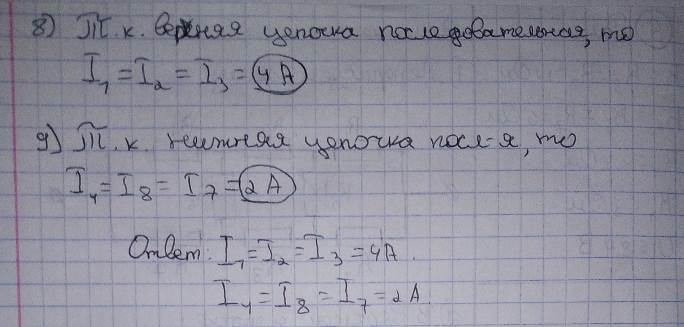 8) Т.к. верхняя цепочка последовательная, то
I₁ = I₂ = I₃ = 4 А
9) Т.к. нижняя цепочка посл-я, то
I₄ = I₈ = I₇ = 2 А
Ответ: I₁ = I₂ = I₃ = 4А.
I₄ = I₈ = I₇ = 2 А.